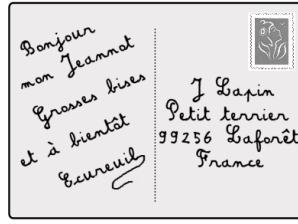 Bonjour
mon Jeannot
Grosses bises
et à bientôt
Ecureuil
J Lapin
Petit terrier
99256 Laforêt
France